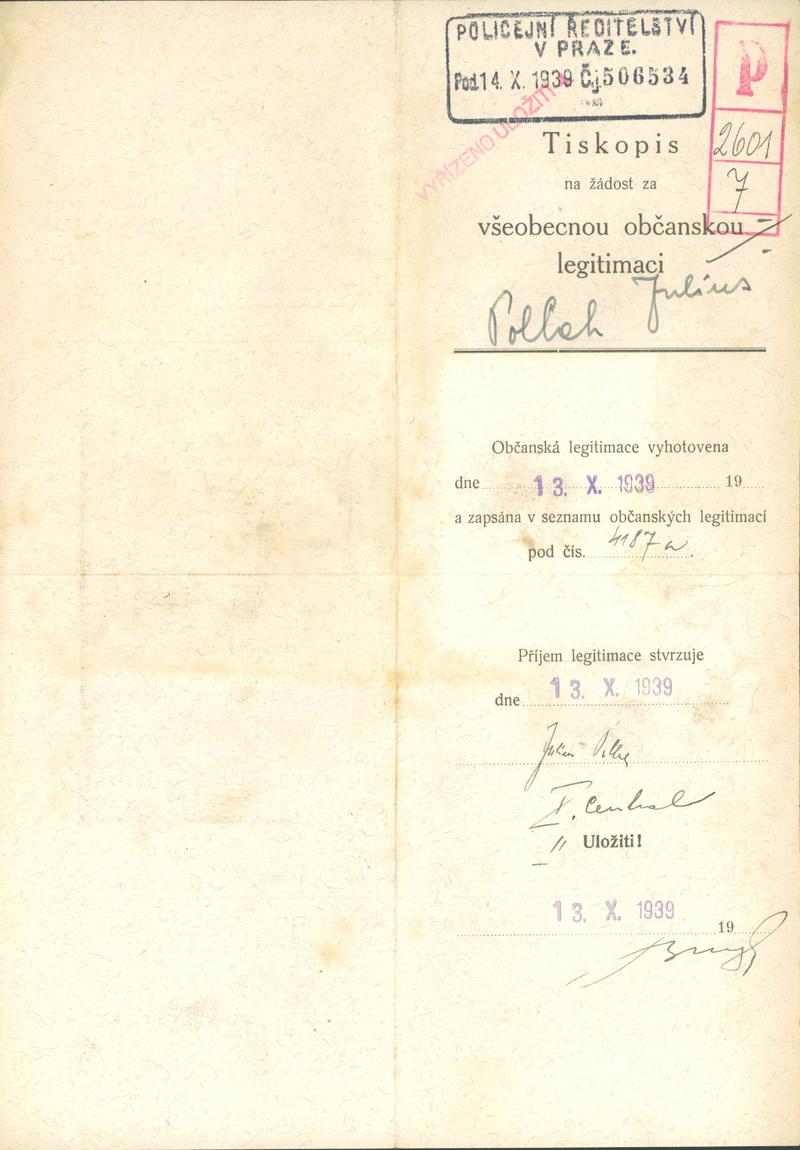 POLICEJNÍ ŘEDITELSTVÍ
V PRAZE.
Pod 14. X. 1939 Čj. 506534
P
2601
7
VYŘÍZENO ULOŽITI
Tiskopis
na žádost za
všeobecnou občanskou
legitimaci
Pollak Julius
Občanská legitimace vyhotovena
dne 13. X. 1939 19
a zapsána v seznamu občanských legitimací
pod čís. 4187 a.
Příjem legitimace stvrzuje
dne 13. X. 1939
Julius
Uložiti!
13. X. 1939 19